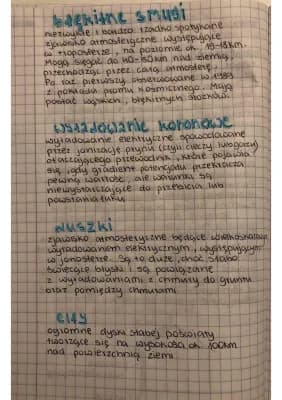 Błękitne smugi
niezwykłe i bardzo rzadko spotykane
zjawisko atmosferyczne występujące
w troposferze, na poziomie ok. 15-18km.
Mogą sięgać do 40-50km nad ziemią,
przechodząc przez całą atmosferę.
Po raz pierwszy obserwowane w 1989
z pokładu promu kosmicznego. Mają
postać wąskich, błękitnych stożków.
Wyładowanie koronowe
wyładowanie elektryczne spowodowane
przez jonizację płynu (czyli cieczy lub gazu)
otaczającego przewodnik, które pojawia
się, gdy gradient potencjału przekracza
pewną wartość, ale warunki są
niewystarczające do przebicia lub
powstania łuku.
duszki
zjawisko atmosferyczne będące
wyładowaniem elektrycznym, występującym
w jonosferze. Są to duże, choć słabo
świecące błyski i są powiązane
z wyładowaniami z chmury do gruntu
oraz pomiędzy chmurami.
Elfy
ogromne dyski słabej poświaty
tworzące się na wysokości ok. 100km
nad powierzchnią ziemi